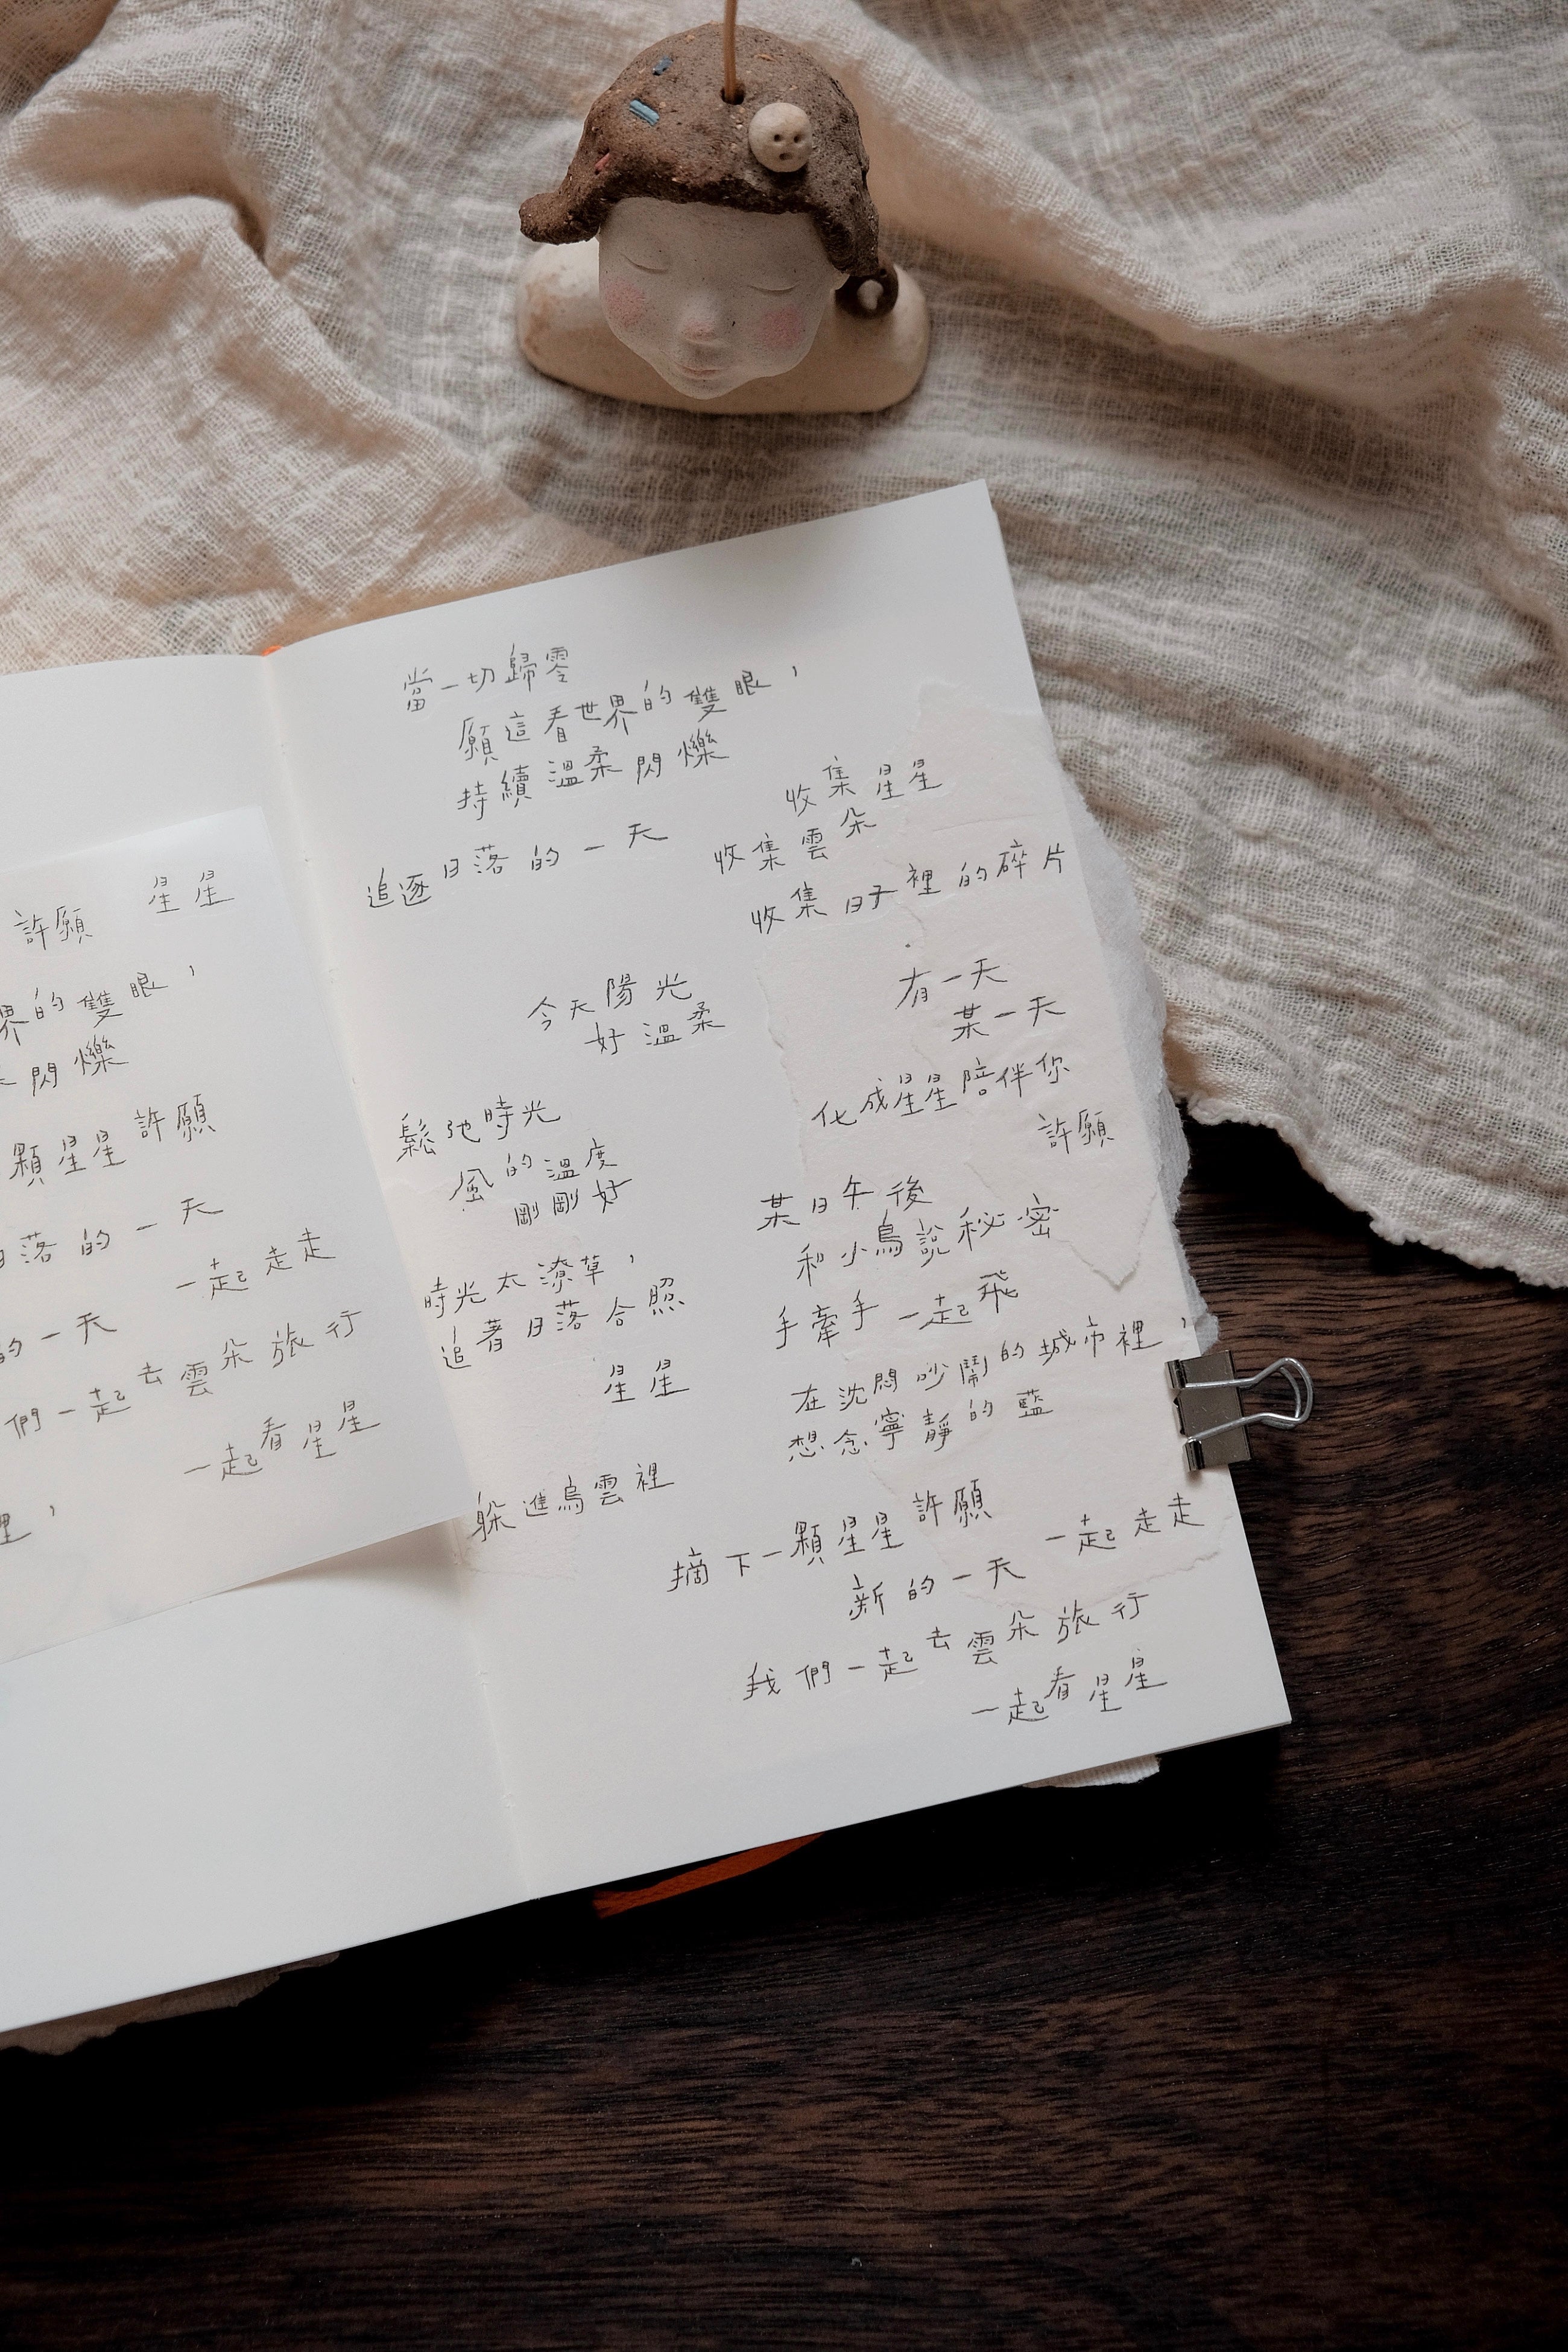 許願
星星
界的雙眼，
閃爍
顆星星許願
落的一天
一起走走
的一天
們一起去雲朵旅行
一起看星星
裡，
當一切歸零
願這看世界的雙眼，
持續溫柔閃爍
追逐日落的一天
今天陽光
好溫柔
鬆弛時光
風的溫度
剛剛好
時光太潦草，
追著日落合照
星星
躲進烏雲裡
收集星星
收集雲朵
收集日子裡的碎片
有一天
某一天
化成星星陪伴你
許願
某日午後
和小鳥說秘密
手牽手一起飛
在沈悶吵鬧的城市裡，
想念寧靜的藍
摘下一顆星星許願
一起走走
新的一天
我們一起去雲朵旅行
一起看星星